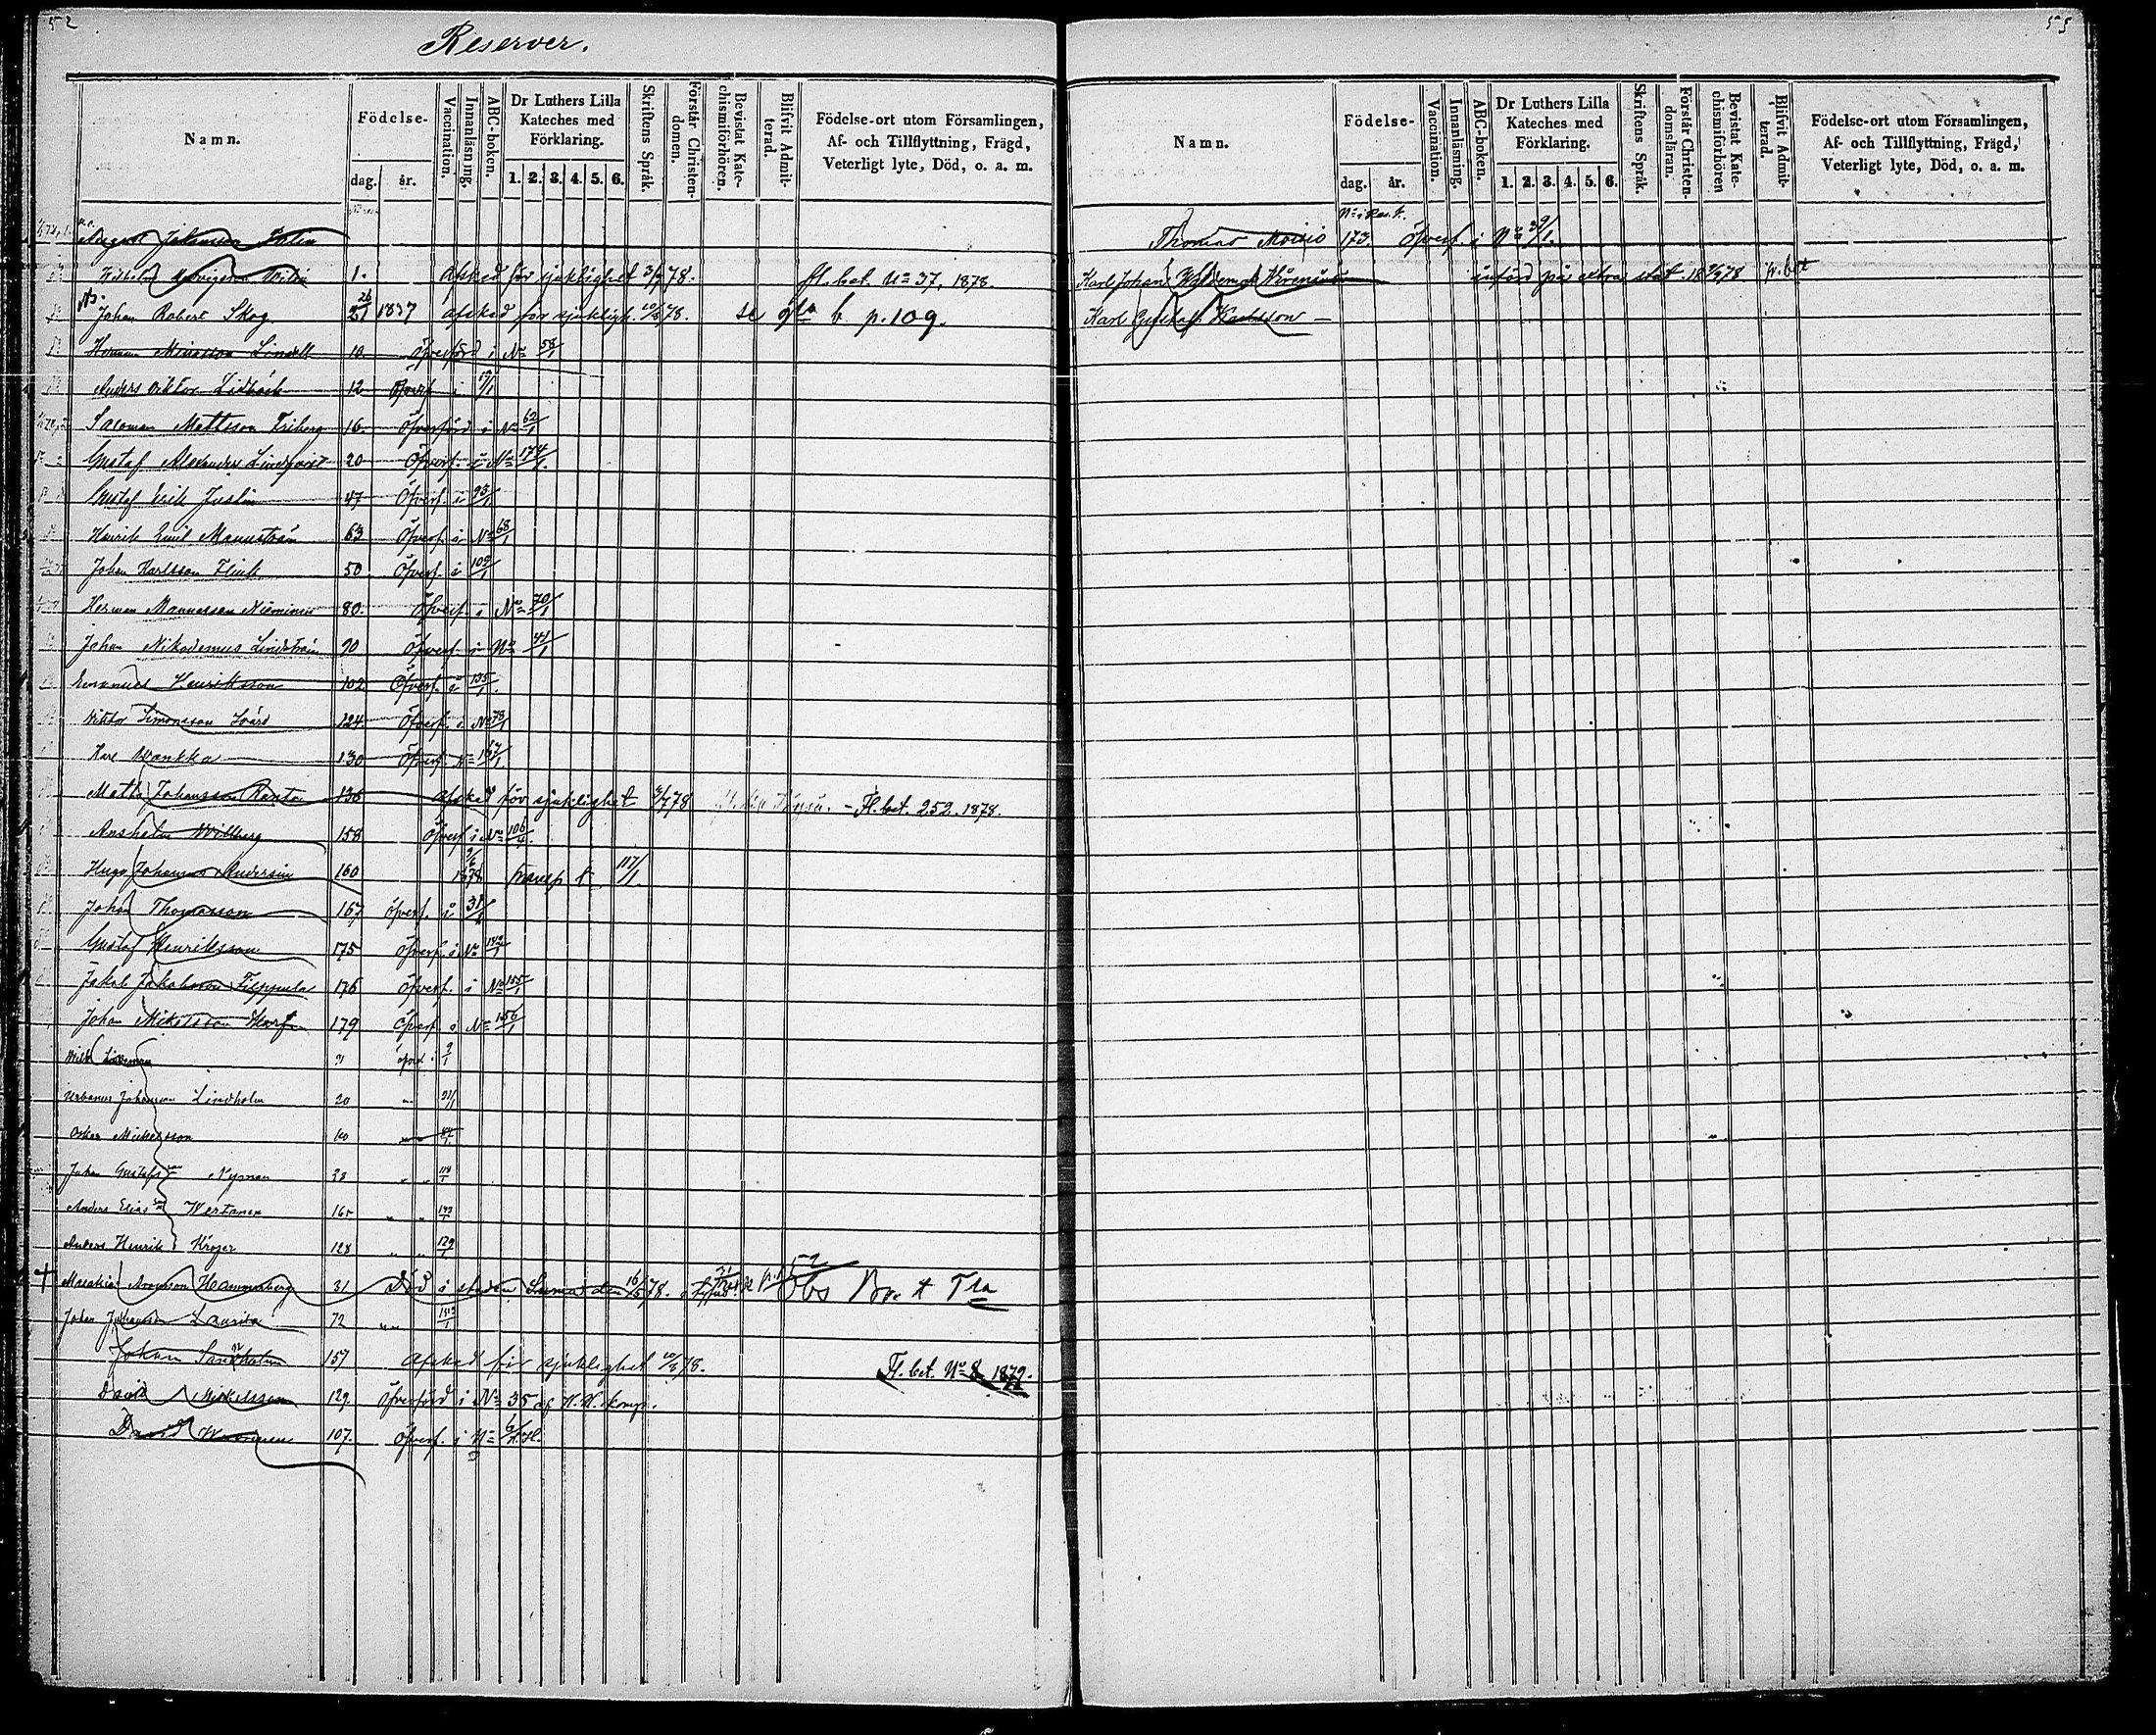 52
Reserver.
Namn.
Födelse-
dag.
år.
Vaccination.
Innanläsning.
ABC-boken.
Dr Luthers Lilla
Kateches med
Förklaring.
1. 2. 3. 4. 5. 6.
Skriftens Språk.
Förstår Christen-
domen.
Bevistat Kate-
chismiförhören.
Blifvit Admit-
terad.
Födelse-ort utom Församlingen,
Af- och Tillflyttning, Frägd,
Veterligt lyte, Död, o. a. m.
August Johansson
1. Afsked för sjuklighet 3/7 78. fl. bet. No 37, 1878.
Johan Robert Skog 26/21 1837 afsked för sjukligh. 10/8 78. se b p. 109.
Herman Lindell 10 Öfverförd i No 58/1
Anders Viktor Lidbäck 12 Öfverf i 19/1
Salomon Mattsson Friberg 16 Öfverförd i No 62/1
Gustaf Alexander Lindqvist 20 Öfverf. i No 174/1
Gustaf Erik Juslin 47 Öfverf i 93/1
Henrik Emil Mannström 63 Öfverf. i No 68/1
Johan Karlsson Flink 50 Öfverf. i 109/1
Herman Manuesson Nieminen 80 Öfverf. i No 70/1
Johan Nikodemus Lindström 90 Öfverf. i No 41/1
Emanuel Henriksson 102 Öfverf. i 135/1.
Viktor Simonsson Svärd 124 Öfverf. i No 78/1
Karl Wankka 130 Öfverf No 167/1.
Matts Johansson Ranta 136 afsked för sjuklighet 3/7 78 - Fl. bet. 252. 1878.
Anshelm Willberg 158 Öfverf i No 106/4.
Hugo Johannes Andersin 160 9/6 1878 transp t. 117/1.
Johan Thomasson 167 öfverf. i 31/1
Gustaf Henriksson 175 Öfverf. i No 142/1
Jakob Jakobsson Filppula 176 Öfverf. i No 155/1
Johan Mikelsson 179 Öfverf i No 156/1
Johansson Lindholm 20 " 91/1
Oskar Mickelsson 10 " " 44/1
Johan Gustafsson Nyman 28 " " 118/1
Anders Elias son Wertanen 165 " " 143/1
Anders Henrik Kröger 128 " " 129/1
† Malakias Aronsson Hammarberg 31 Död i staden den 16/5 78.
Johan Johansson Laurila 72 " "
Johan Sandholm 157 Afsked för sjuklighet 10/8 78. Fl. bet. No 8 1879.
David Mikelsson 129. Öfverförd i No 35 af komp.
David 107. Öfverf. i No
55
Namn.
Födelse-
dag.
år.
Vaccination.
Innanläsning.
ABC-boken.
Dr Luthers Lilla
Kateches med
Förklaring.
1. 2. 3. 4. 5. 6.
Skriftens Språk.
Förstår Christen-
domsläran.
Bevistat Kate-
chismiförhören
Blifvit Admit-
terad.
Födelse-ort utom Församlingen,
Af- och Tillflyttning, Frägd,
Veterligt lyte, Död, o. a. m.
Thomas Moisio 173. Öfverf. i No
Karl Johan Waldemar införd på extra stat
Karl Gustaf Karlsson